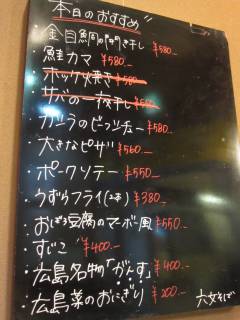 本日のおすすめ
・金目鯛の開き干し ¥580-
・鮭カマ ¥580-
・ホッケ焼き ¥580-
・サバの一夜干し ¥580-
・ガシラのビーフシチュー ¥580-
・大きなピザ ¥560-
・ポークソテー ¥550-
・うずらフライ(2本) ¥380-
・おぼろ豆腐のマーボー風 ¥550-
・すじこ ¥400-
・広島名物「がんす」 ¥400-
・広島菜のおにぎり ¥200-
六文そば